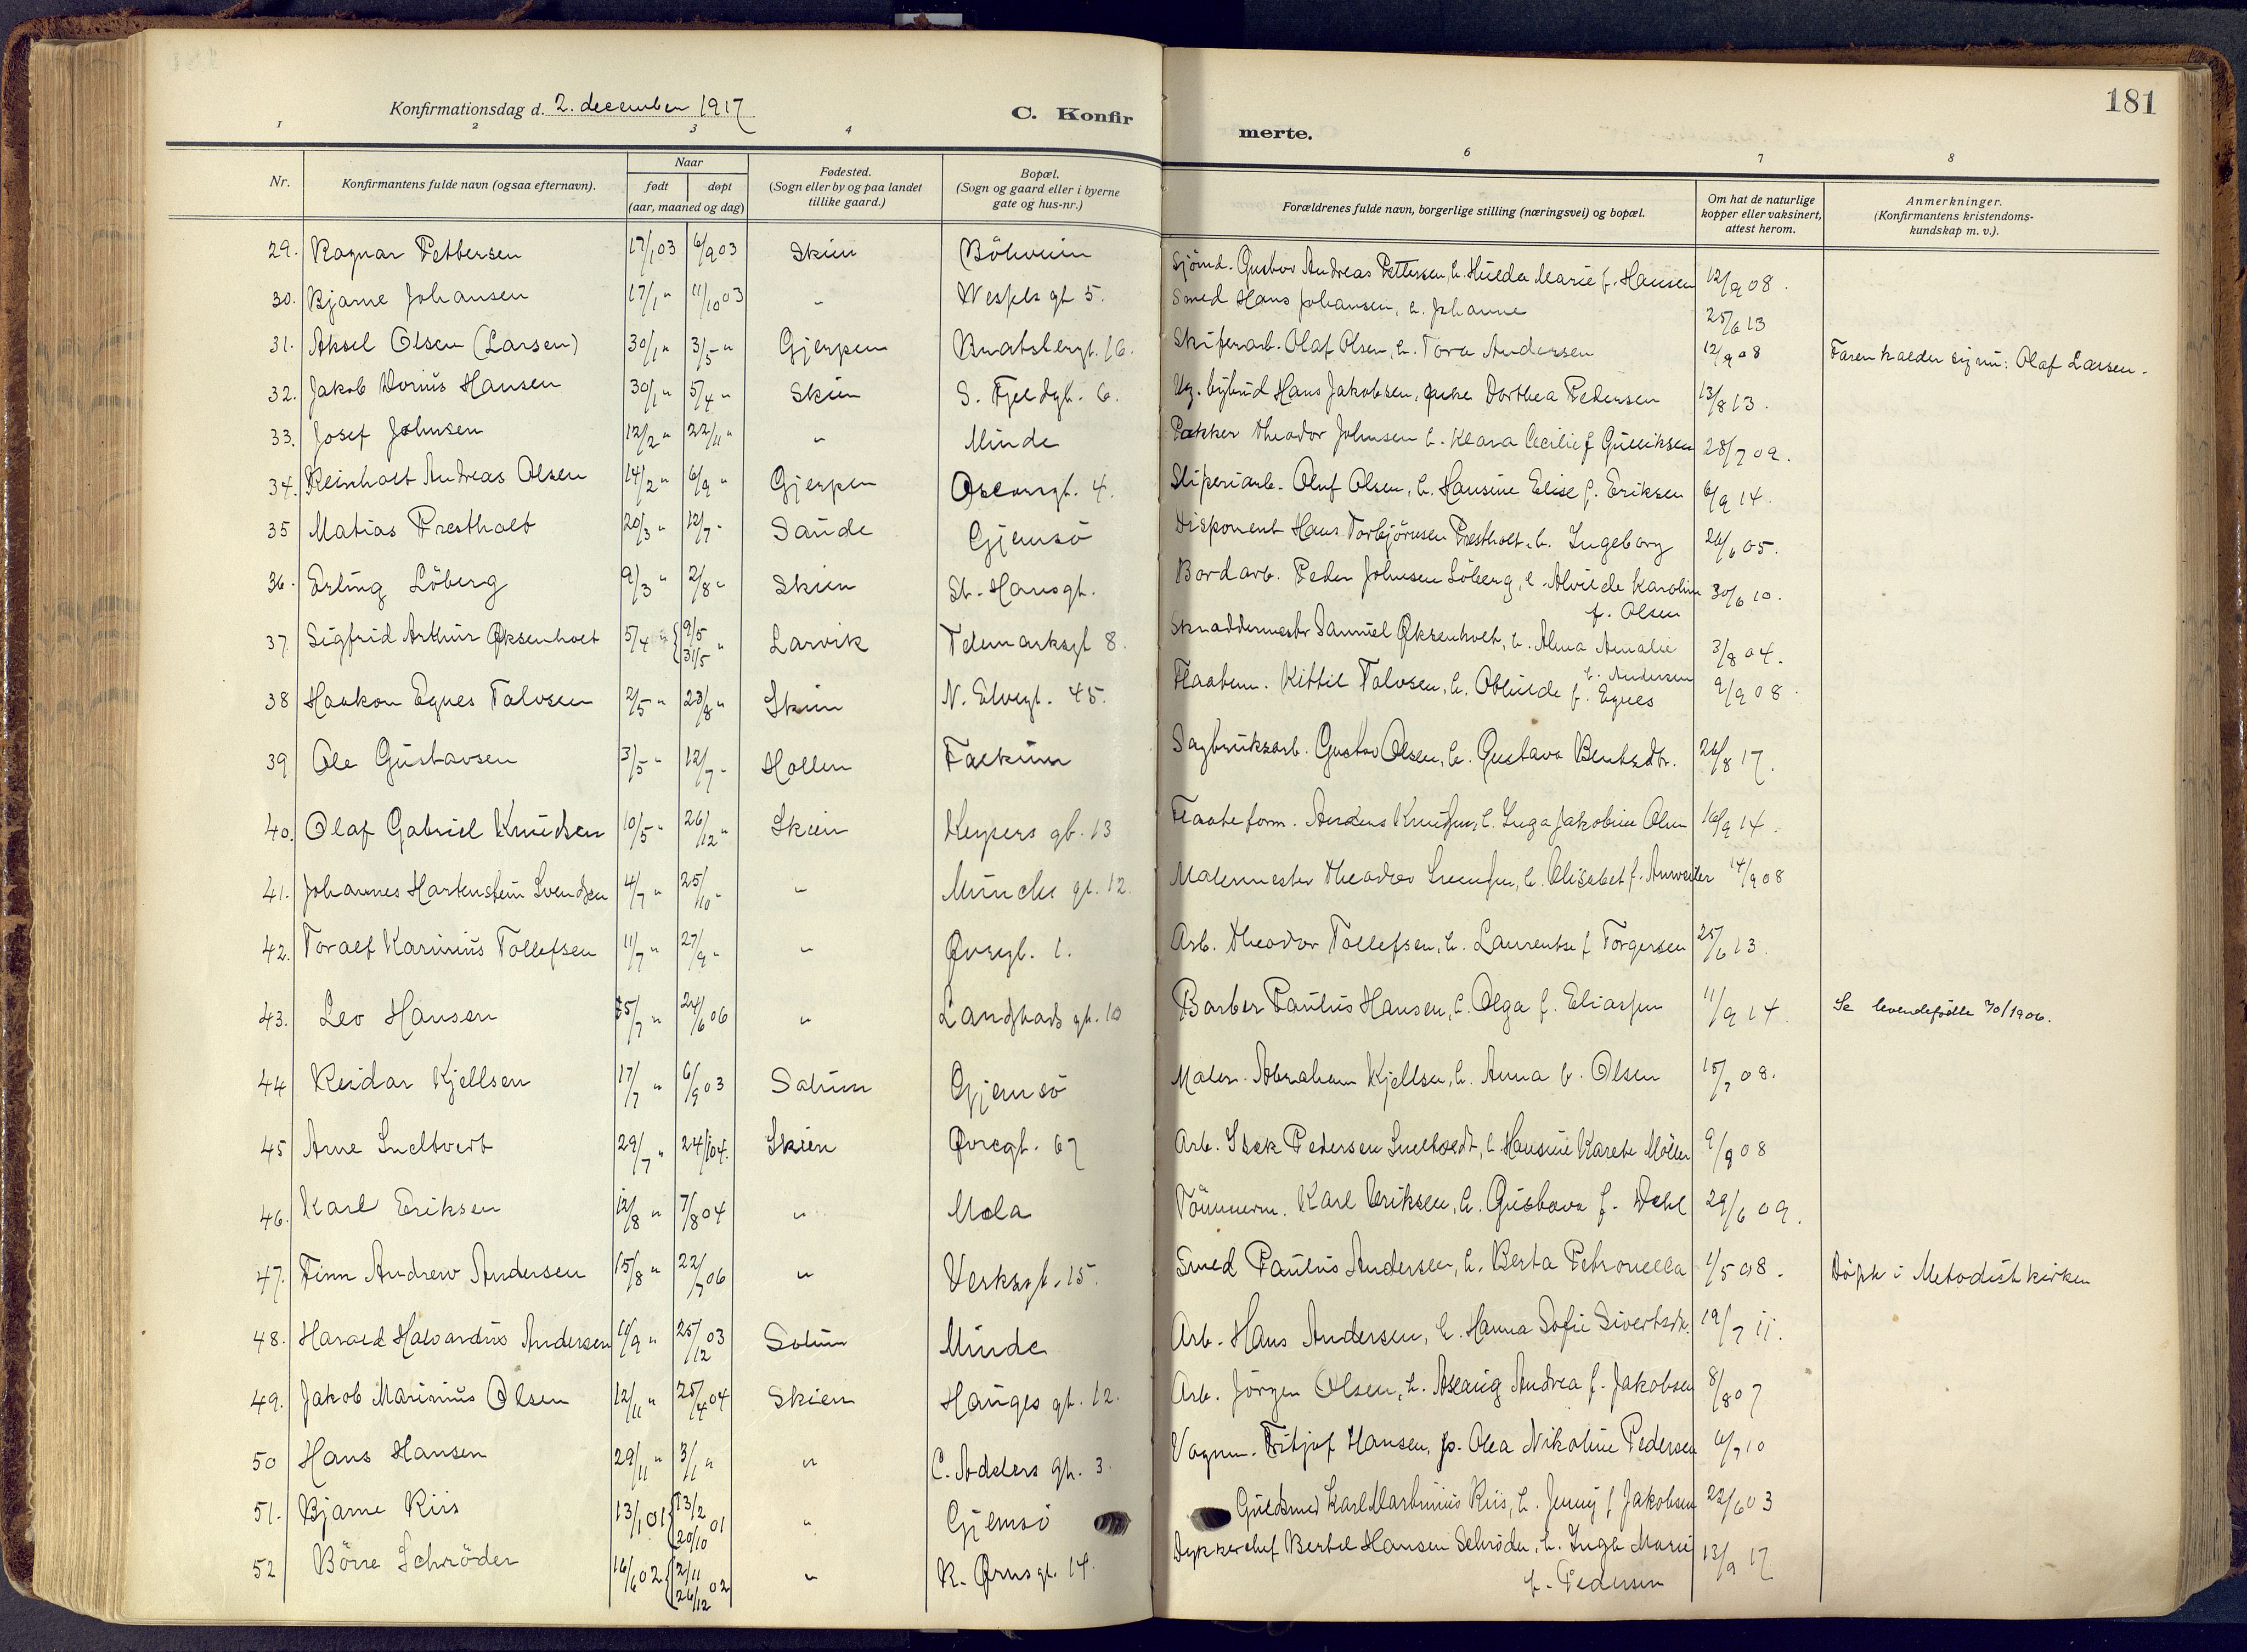 181
Konfirmationsdag d. 2. december 1917
C. Konfirmerte.
1 2 3 4 6 7 8
Nr. Konfirmantens fulde navn (ogsaa efternavn). Naar født døpt (aar, maaned og dag) Fødested. (Sogn eller by og paa landet tillike gaard.) Bopæl. (Sogn og gaard eller i byerne gate og hus-nr.) Forældrenes fulde navn, borgerlige stilling (næringsvei) og bopæl. Om hat de naturlige kopper eller vaksinert, attest herom. Anmerkninger. (Konfirmantens kristendomskundskap m. v.).
29. Ragnar Pettersen 17/1 03 6/9 03 Skien Bölevein Sjömd. Gustav Andreas Pettersen, h. Hilda Marie f. Hansen 12/9 08.
30. Bjarne Johansen 17/1 " 11/10 03 " Wesfels gt 5. Smed Hans Johansen, h. Johanne 25/6 13
31. Aksel Olsen (Larsen) 30/1 " 3/5 " Gjerpen Bratsbergt. 16. Skiferarb. Olaf Olsen, h. Tora Andersen 12/9 08 Faren kalder sig nu: Olaf Larsen.
32. Jakob Dorius Hansen 30/1 " 5/4 " Skien S. Fjeldgt. 6. Ug. bybud Hans Jakobsen, pike Dorthea Pedersen 13/8 13.
33. Josef Johnsen 12/2 " 22/11 " " Minde Pakker Theodor Johnsen h. Klara Cecilie f Gulliksen 28/7 09.
34. Reinholt Andreas Olsen 14/2 " 6/9 " Gjerpen Oscarsgt. 4. Sliperiarb. Oluf Olsen, h. Hansine Elise f. Eriksen 6/9 14.
35 Matias Prestholt 20/3 " 12/7 " Saude Gjemsö Disponent Hans Torbjörnsen Prestholt, h. Ingeborg 26/6 05.
36. Erling Löberg 9/3 " 2/8 " Skien St. Hansgt. Bordarb. Peder Johnsen Löberg, h. Alvilde Karoline f. Olsen 30/6 10.
37 Sigfrid Arthur Øksenholt 5/4 " {9/5 31/5 " Larvik Telemarksgt 8. Skraddermester Samuel Øksenholt, h. Alma Amalie f. Andersen 3/8 04.
38 Haakon Egnes Talvsen 2/5 " 23/8 " Skien N. Elvegt. 45. Flaatem. Kittil Talvsen, h. Othilde f. Egnes 9/9 08.
39 Ole Gustavsen 3/5 " 12/7 " Hollen Falkum Sagbruksarb. Gustav Olsen, h. Gustava Bentsdtr. 26/8 17.
40. Olaf Gabriel Knudsen 10/5 " 26/12 " Skien Keysers gt. 13 Flaateform. Anders Knudsen, h. Inga Jakobine Olsen 16/9 14.
41. Johannes Hartenstein Svendsen 4/7 " 25/10 " " Munchs gt. 12. Malermester Theodor Svendsen, h. Elisabet f. Anweiler 14/9 08
42. Toralf Karinius Tollefsen 11/7 " 27/9 " " Øvregt. 1. Arb. Theodor Tollefsen, h. Laurentse f Torgersen 25/6 13.
43. Leo Hansen 15/7 " 24/6 06 " Landstads gt. 10 Barber Paulus Hansen, h. Olga f. Eliassen 11/9 14. Se levendefödte 70/1906.
44 Reidar Kjellsen 17/7 " 6/9 03 Solum Gjemsö Maler. Abraham Kjellsen, h. Anna f. Olsen 15/7 08.
45 Arne Sneltvert 29/7 " 24/1 04. Skien Øvregt. 67 Arb. Isak Pedersen Sneltvedt, h. Hansine Karete Möller 9/9 08
46. Karl Eriksen 12/8 " 7/8 04 " Mæla Tömmerm. Karl Eriksen, h. Gustava f. Dehl 29/6 09.
47. Finn Andrew Andersen 15/8 " 22/7 06 " Verksgt. 15. Smed Paulus Andersen, h. Berta Petronella 1/5 08. Döpt i Metodistkirken
48. Harald Halvardius Andersen 11/9 " 25/12 03 Solum Minde Arb. Hans Andersen, h. Hanna Sofie Sivertsdtr. 19/7 11.
49. Jakob Marinius Olsen 12/11 " 25/4 04 Skien Hauges gt. 12. Arb. Jörgen Olsen, h. Aslaug Andrea f. Jakobsen 8/8 07
50 Hans Hansen 29/11 " 3/11 " " C. Addlers gt. 3. Vognm. Fritjof Hansen, p. Olea Nikoline Pedersen 6/7 10
51. Bjarne Riis 13/1 01 {13/2 20/10 01 " Gjemsö Guldsmed Karl Martinius Riis, h. Jenny f Jakobsen 22/6 03
52 Börre Schröder 16/6 02 {2/11 26/12 02 " K. Ørnsgt. 14. Dykkerchef Bertel Hansen Schröder, h. Inga Marie f. Pedersen 13/9 17